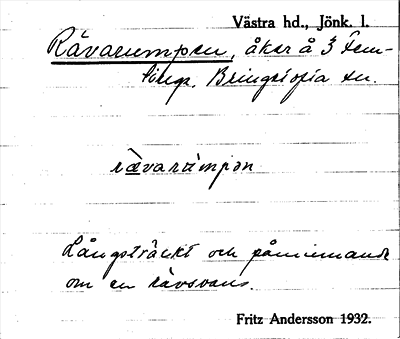 Västra hd., Jönk. l.
Rävarumpen, åker å 3 Fem-
tingr. Bringetofta sn.
rävarùmpon
Långsträckt och påminnande
om en rävsvans.
Fritz Andersson 1932.